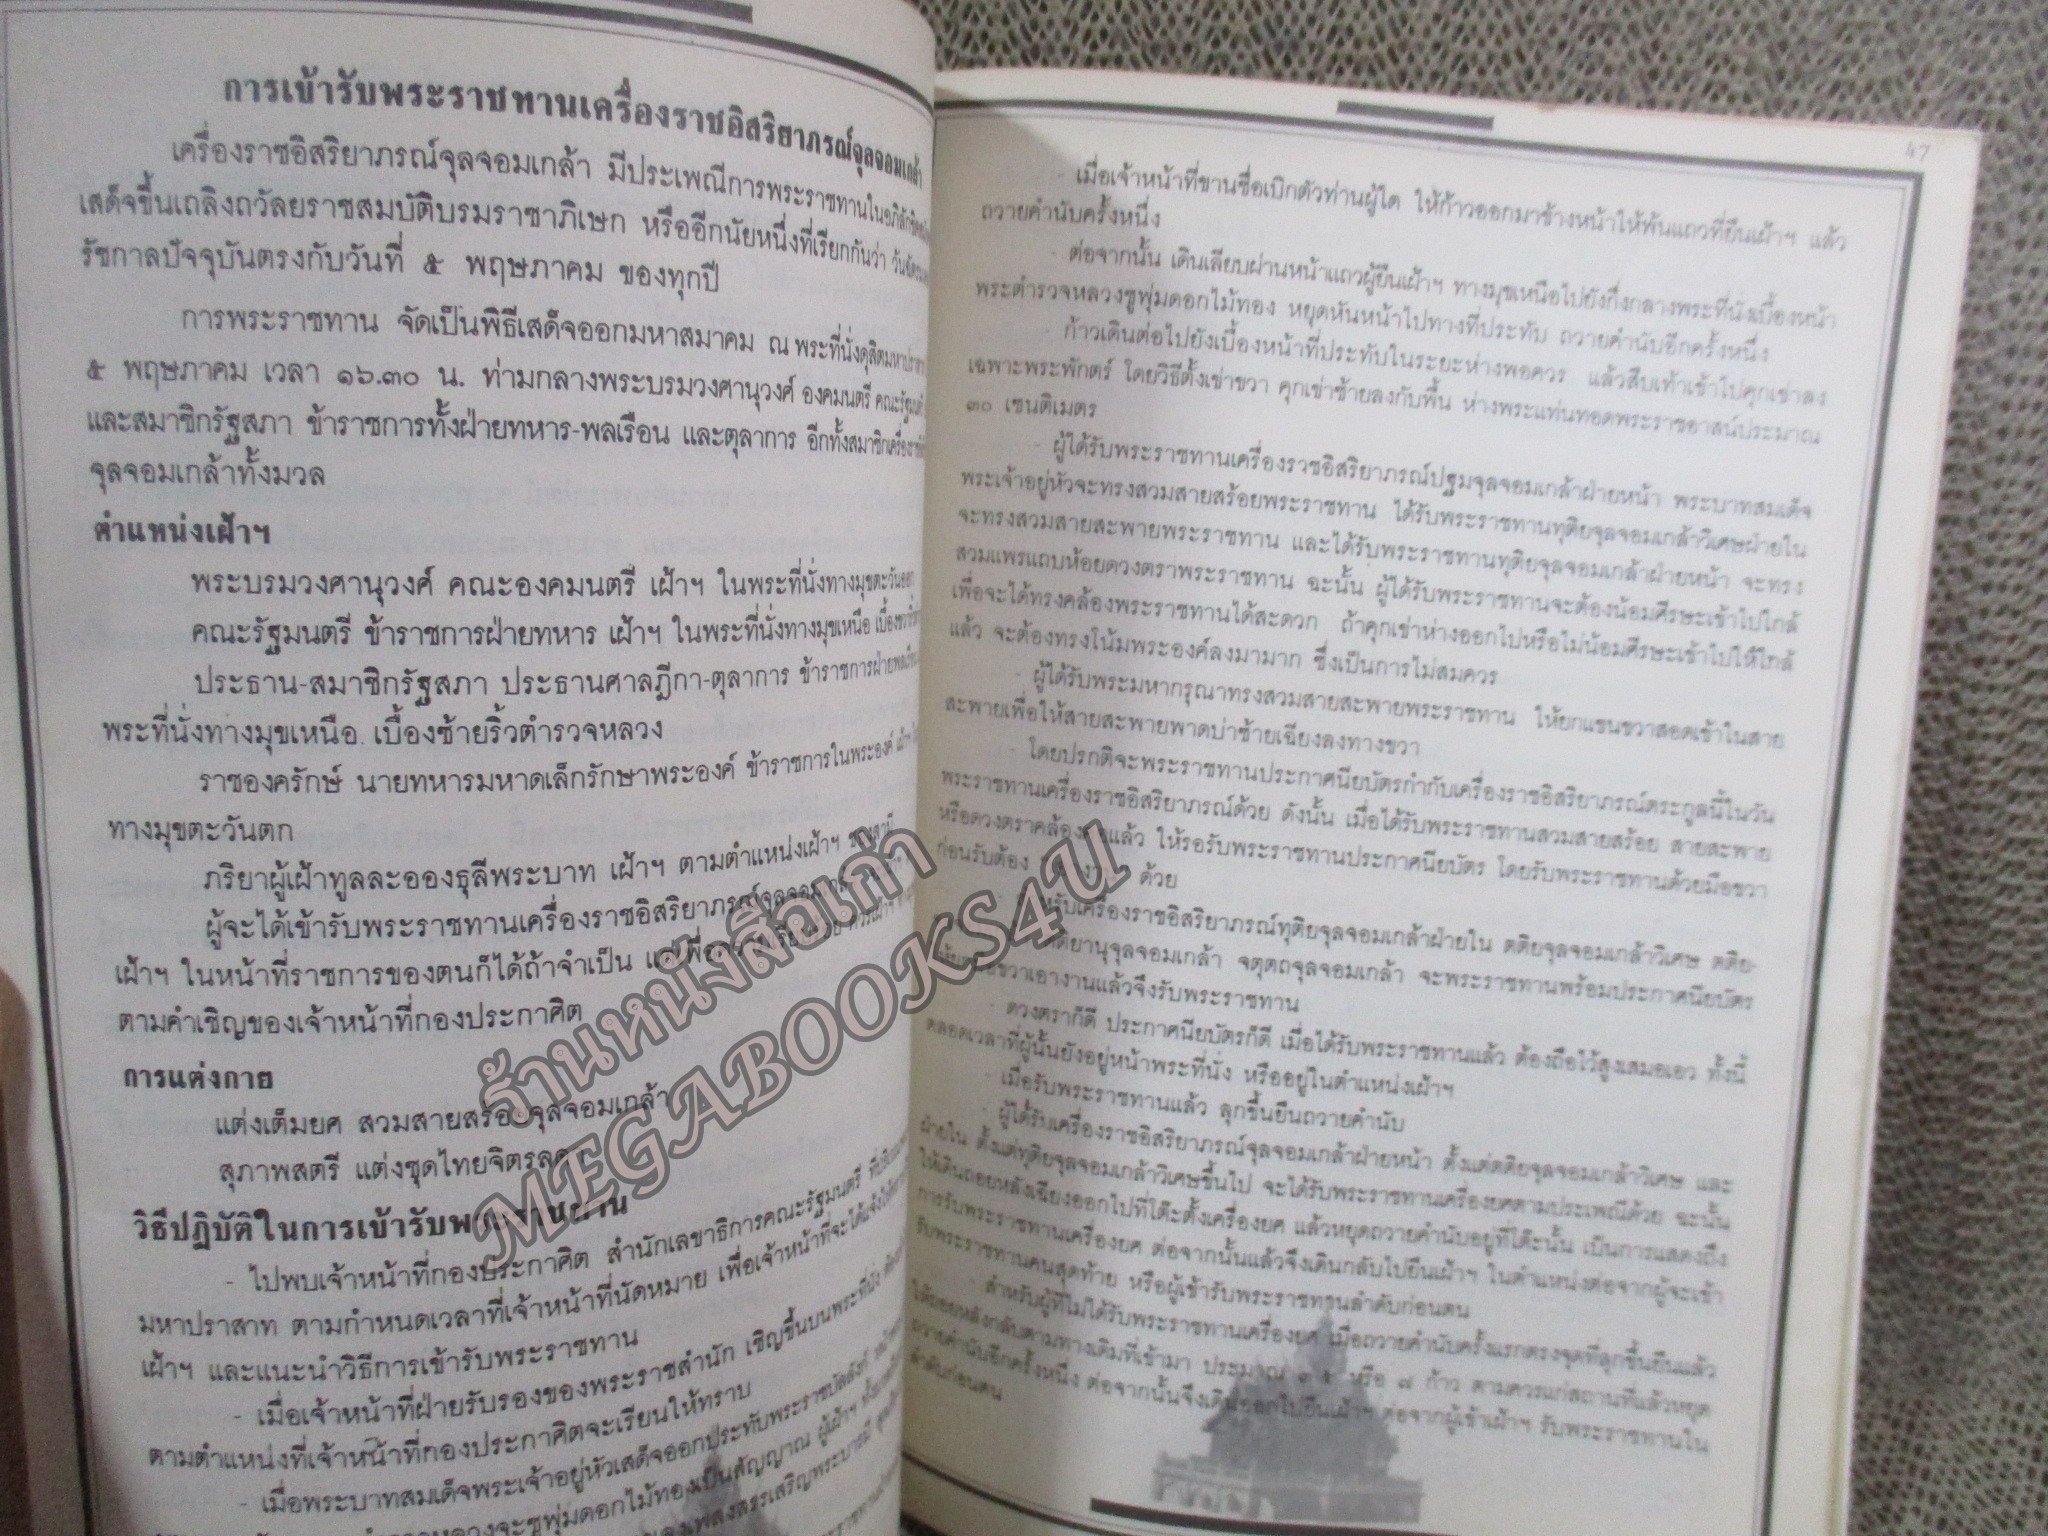 การเข้ารับพระราชทานเครื่องราชอิสริยาภรณ์จุลจอมเกล้า
เครื่องราชอิสริยาภรณ์จุลจอมเกล้า มีประเพณีการพระราชทานใน
เสด็จขึ้นเถลิงถวัลยราชสมบัติบรมราชาภิเษก หรืออีกนัยหนึ่งที่เรียกกันว่า
รัชกาลปัจจุบันตรงกับวันที่ ๕ พฤษภาคม ของทุกปี
การพระราชทาน จัดเป็นพิธีเสด็จออกมหาสมาคม ณ พระที่นั่งดุสิตมหาปราสาท
๕ พฤษภาคม เวลา ๑๖.๓๐ น. ท่ามกลางพระบรมวงศานุวงศ์ องคมนตรี คณะรัฐมนตรี
และสมาชิกรัฐสภา ข้าราชการทั้งฝ่ายทหาร-พลเรือน และตุลาการ อีกทั้งสมาชิก
จุลจอมเกล้าทั้งมวล
ตำแหน่งเฝ้าฯ
พระบรมวงศานุวงศ์ คณะองคมนตรี เฝ้าฯ ในพระที่นั่งทางมุขตะวันออก
คณะรัฐมนตรี ข้าราชการฝ่ายทหาร เฝ้าฯ ในพระที่นั่งทางมุขเหนือ
ประธาน-สมาชิกรัฐสภา ประธานศาลฎีกา-ตุลาการ ข้าราชการฝ่ายพลเรือน
พระที่นั่งทางมุขเหนือ เบื้องซ้ายริ้วตำรวจหลวง
ราชองครักษ์ นายทหารมหาดเล็กรักษาพระองค์ ข้าราชการในพระองค์
ทางมุขตะวันตก
ภริยาผู้เฝ้าทูลละอองธุลีพระบาท เฝ้าฯ ตามตำแหน่งเฝ้าฯ ของสามี
ผู้จะได้เข้ารับพระราชทานเครื่องราชอิสริยาภรณ์
เฝ้าฯ ในหน้าที่ราชการของตนก็ได้ถ้าจำเป็น
ตามคำเชิญของเจ้าหน้าที่กองประกาศิต
การแต่งกาย
แต่งเต็มยศ สวมสายสร้อยจุลจอมเกล้า
สุภาพสตรี แต่งชุดไทยจิตรลดา
วิธีปฏิบัติในการเข้ารับพระราชทาน
- ไปพบเจ้าหน้าที่กองประกาศิต สำนักเลขาธิการคณะรัฐมนตรี
มหาปราสาท ตามกำหนดเวลาที่เจ้าหน้าที่นัดหมาย เพื่อเจ้าหน้าที่จะได้
เฝ้าฯ และแนะนำวิธีการเข้ารับพระราชทาน
- เมื่อเจ้าหน้าที่ฝ่ายรับรองของพระราชสำนัก เชิญขึ้นบนพระที่นั่ง
ตามตำแหน่งที่เจ้าหน้าที่กองประกาศิตจะเรียนให้ทราบ
- เมื่อพระบาทสมเด็จพระเจ้าอยู่หัวเสด็จออกประทับพระราชบัลลังก์
จะชูพุ่มดอกไม้ทองเป็นสัญญาณ ผู้เฝ้าฯ
เพลงสรรเสริญพระบารมี
47
- เมื่อเจ้าหน้าที่ขานชื่อเบิกตัวท่านผู้ใด ให้ก้าวออกมาข้างหน้าให้พ้นแถวที่ยืนเฝ้าฯ แล้ว
ถวายคำนับครั้งหนึ่ง
- ต่อจากนั้น เดินเลียบผ่านหน้าแถวผู้ยืนเฝ้าฯ ทางมุขเหนือไปยังกึ่งกลางพระที่นั่งเบื้องหน้า
พระตำรวจหลวงชูพุ่มดอกไม้ทอง หยุดหันหน้าไปทางที่ประทับ ถวายคำนับอีกครั้งหนึ่ง
- ก้าวเดินต่อไปยังเบื้องหน้าที่ประทับในระยะห่างพอควร แล้วสืบเท้าเข้าไปคุกเข่าลง
เฉพาะพระพักตร์ โดยวิธีตั้งเข่าขวา คุกเข่าซ้ายลงกับพื้น ห่างพระแท่นทอดพระราชอาสน์ประมาณ
๓๐ เซนติเมตร
- ผู้ได้รับพระราชทานเครื่องราชอิสริยาภรณ์ปฐมจุลจอมเกล้าฝ่ายหน้า พระบาทสมเด็จ
พระเจ้าอยู่หัวจะทรงสวมสายสร้อยพระราชทาน ได้รับพระราชทานทุติยจุลจอมเกล้าวิเศษฝ่ายใน
จะทรงสวมสายสะพายพระราชทาน และได้รับพระราชทานทุติยจุลจอมเกล้าฝ่ายหน้า จะทรง
สวมแพรแถบห้อยดวงตราพระราชทาน ฉะนั้น ผู้ได้รับพระราชทานจะต้องน้อมศีรษะเข้าไปใกล้
เพื่อจะได้ทรงคล้องพระราชทานได้สะดวก ถ้าคุกเข่าห่างออกไปหรือไม่น้อมศีรษะเข้าไปให้ใกล้
แล้ว จะต้องทรงโน้มพระองค์ลงมามาก ซึ่งเป็นการไม่สมควร
- ผู้ได้รับพระมหากรุณาทรงสวมสายสะพายพระราชทาน ให้ยกแขนขวาสอดเข้าในสาย
สะพายเพื่อให้สายสะพายพาดบ่าซ้ายเฉียงลงทางขวา
- โดยปรกติจะพระราชทานประกาศนียบัตรกำกับเครื่องราชอิสริยาภรณ์ตระกูลนี้ในวัน
พระราชทานเครื่องราชอิสริยาภรณ์ด้วย ดังนั้น เมื่อได้รับพระราชทานสวมสายสร้อย สายสะพาย
หรือดวงตราคล้องคอแล้ว ให้รอรับพระราชทานประกาศนียบัตร โดยรับพระราชทานด้วยมือขวา
ก่อนรับต้อง ด้วย
เครื่องราชอิสริยาภรณ์ทุติยจุลจอมเกล้าฝ่ายใน ตติยจุลจอมเกล้าวิเศษ ตติย-
ตติยานุจุลจอมเกล้า จตุตถจุลจอมเกล้า จะพระราชทานพร้อมประกาศนียบัตร
ขวาเอางานแล้วจึงรับพระราชทาน
- ดวงตราก็ดี ประกาศนียบัตรก็ดี เมื่อได้รับพระราชทานแล้ว ต้องถือไว้สูงเสมอเอว ทั้งนี้
ตลอดเวลาที่ผู้นั้นยังอยู่หน้าพระที่นั่ง หรืออยู่ในตำแหน่งเฝ้าฯ
- เมื่อรับพระราชทานแล้ว ลุกขึ้นยืนถวายคำนับ
- ผู้ได้รับเครื่องราชอิสริยาภรณ์จุลจอมเกล้าฝ่ายหน้า ตั้งแต่ตติยจุลจอมเกล้าวิเศษ และ
ฝ่ายใน ตั้งแต่ทุติยจุลจอมเกล้าวิเศษขึ้นไป จะได้รับพระราชทานเครื่องยศตามประเพณีด้วย ฉะนั้น
ให้เดินถอยหลังเฉียงออกไปที่โต๊ะตั้งเครื่องยศ แล้วหยุดถวายคำนับอยู่ที่โต๊ะนั้น เป็นการแสดงถึง
การรับพระราชทานเครื่องยศ ต่อจากนั้นแล้วจึงเดินกลับไปยืนเฝ้าฯ ในตำแหน่งต่อจากผู้จะเข้า
รับพระราชทานคนสุดท้าย หรือผู้เข้ารับพระราชทานลำดับก่อนตน
สำหรับผู้ที่ไม่ได้รับพระราชทานเครื่องยศ เมื่อถวายคำนับครั้งแรกตรงจุดที่ลุกขึ้นยืนแล้ว
ให้ถอยหลังกลับตามทางเดิมที่เข้ามา ประมาณ ๓ ๕ หรือ ๗ ก้าว ตามควรแก่สถานที่แล้วหยุด
ถวายคำนับอีกครั้งหนึ่ง ต่อจากนั้นจึงเดินออกไปยืนเฝ้าฯ ต่อจากผู้เข้าเฝ้าฯ รับพระราชทานใน
ลำดับก่อนตน
ร้านหนังสือเก่า
MEGABOOKS4U